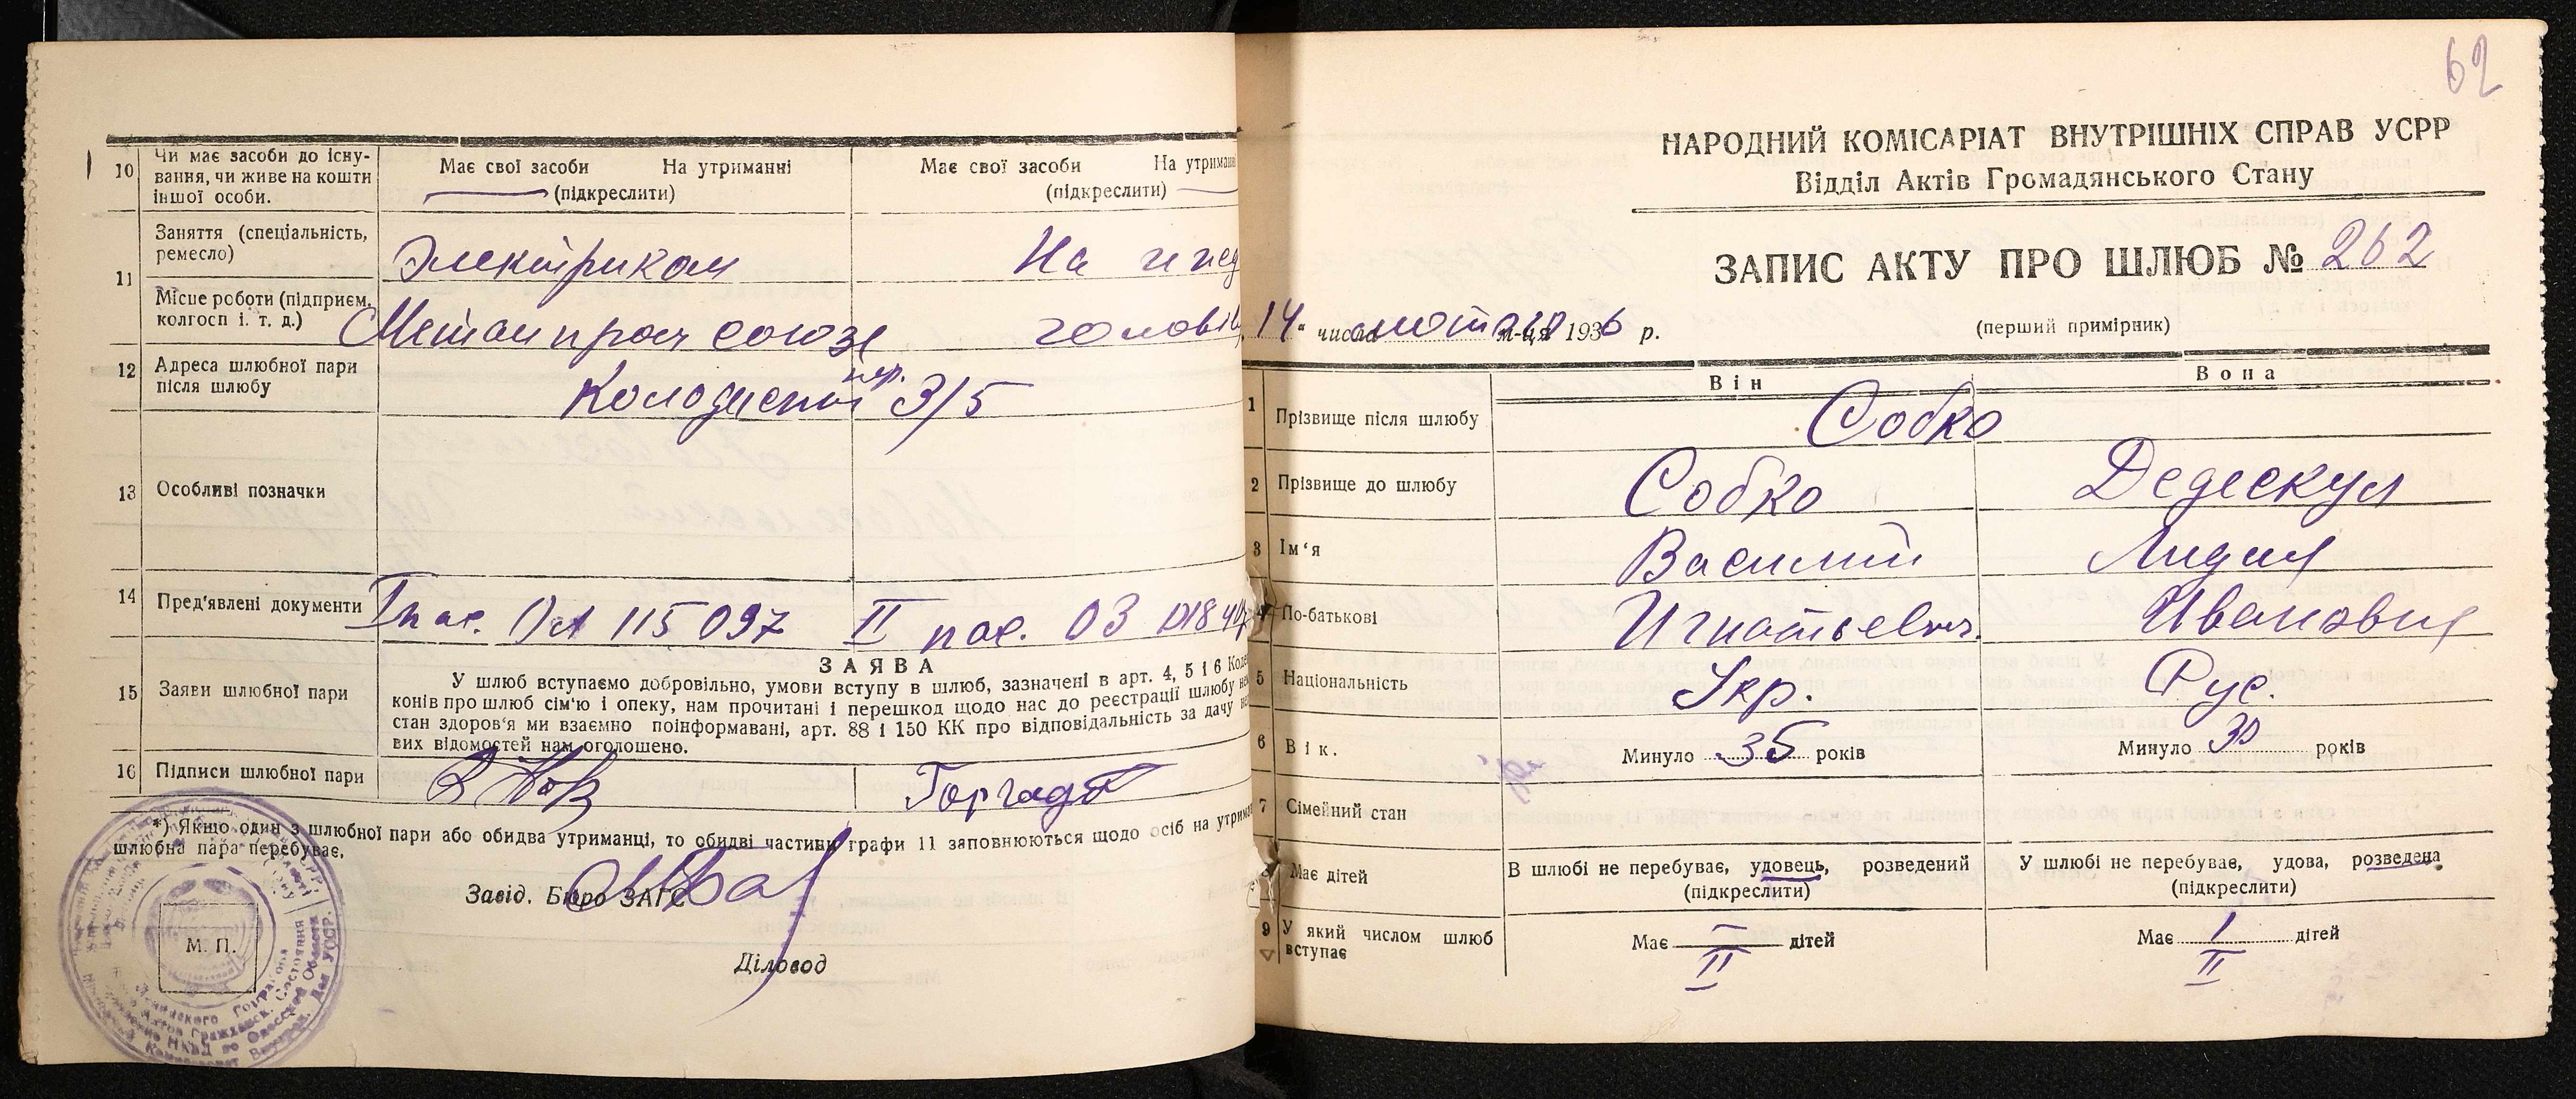 10 Чи має засоби до існу-
вання, чи живе на кошти
іншої особи.
Має свої засоби На утриманні
(підкреслити)
Має свої засоби На утриманні
(підкреслити)
11
Заняття (спеціальність,
ремесло)
Электриком
На ижд
Місце роботи (підприєм.
колгосп і. т. д.)
союзе
12 Адреса шлюбної пари
після шлюбу
пер.
3/5
13 Особливі позначки
14 Пред'явлені документи
I пас. 115097 II пас. 03
ЗАЯВА
15 Заяви шлюбної пари
У шлюб вступаємо добровільно, умови вступу в шлюб, зазначені в арт. 4, 5 і 6 Коде
конів про шлюб сім'ю і опеку, нам прочитані і перешкод щодо нас до реєстрації шлюбу не
стан здоров'я ми взаємно поінформавані, арт. 88 і 150 КК про відповідальність за дачу
вих відомостей нам оголошено.
16 Підписи шлюбної пари
*) Якщо один з шлюбної пари або обидва утриманці, то обидві частини графи 11 заповнюються щодо осіб на утрим
шлюбна пара перебуває.
Завід. Бюро ЗАГС
Діловод
М. П.
62
НАРОДНИЙ КОМІСАРІАТ ВНУТРІШНІХ СПРАВ УСРР
Відділ Актів Громадянського Стану
ЗАПИС АКТУ ПРО ШЛЮБ № 262
14 числа лютого м-ця 1936 р.
(перший примірник)
Він Вона
1 Прізвище після шлюбу Собко
2 Прізвище до шлюбу Собко Дедескул
3 Ім'я Василий Лидия
4 По-батькові Игнатьевич Ивановна
5 Національність Укр. Рус.
6 Вік. Минуло 35 років Минуло 30 років
7 Сімейний стан
8 Має дітей
В шлюбі не перебуває, удовець, розведений
(підкреслити)
У шлюбі не перебуває, удова, розведена
(підкреслити)
9 У який числом шлюб
вступає
Має — дітей
II
Має 1 дітей
II